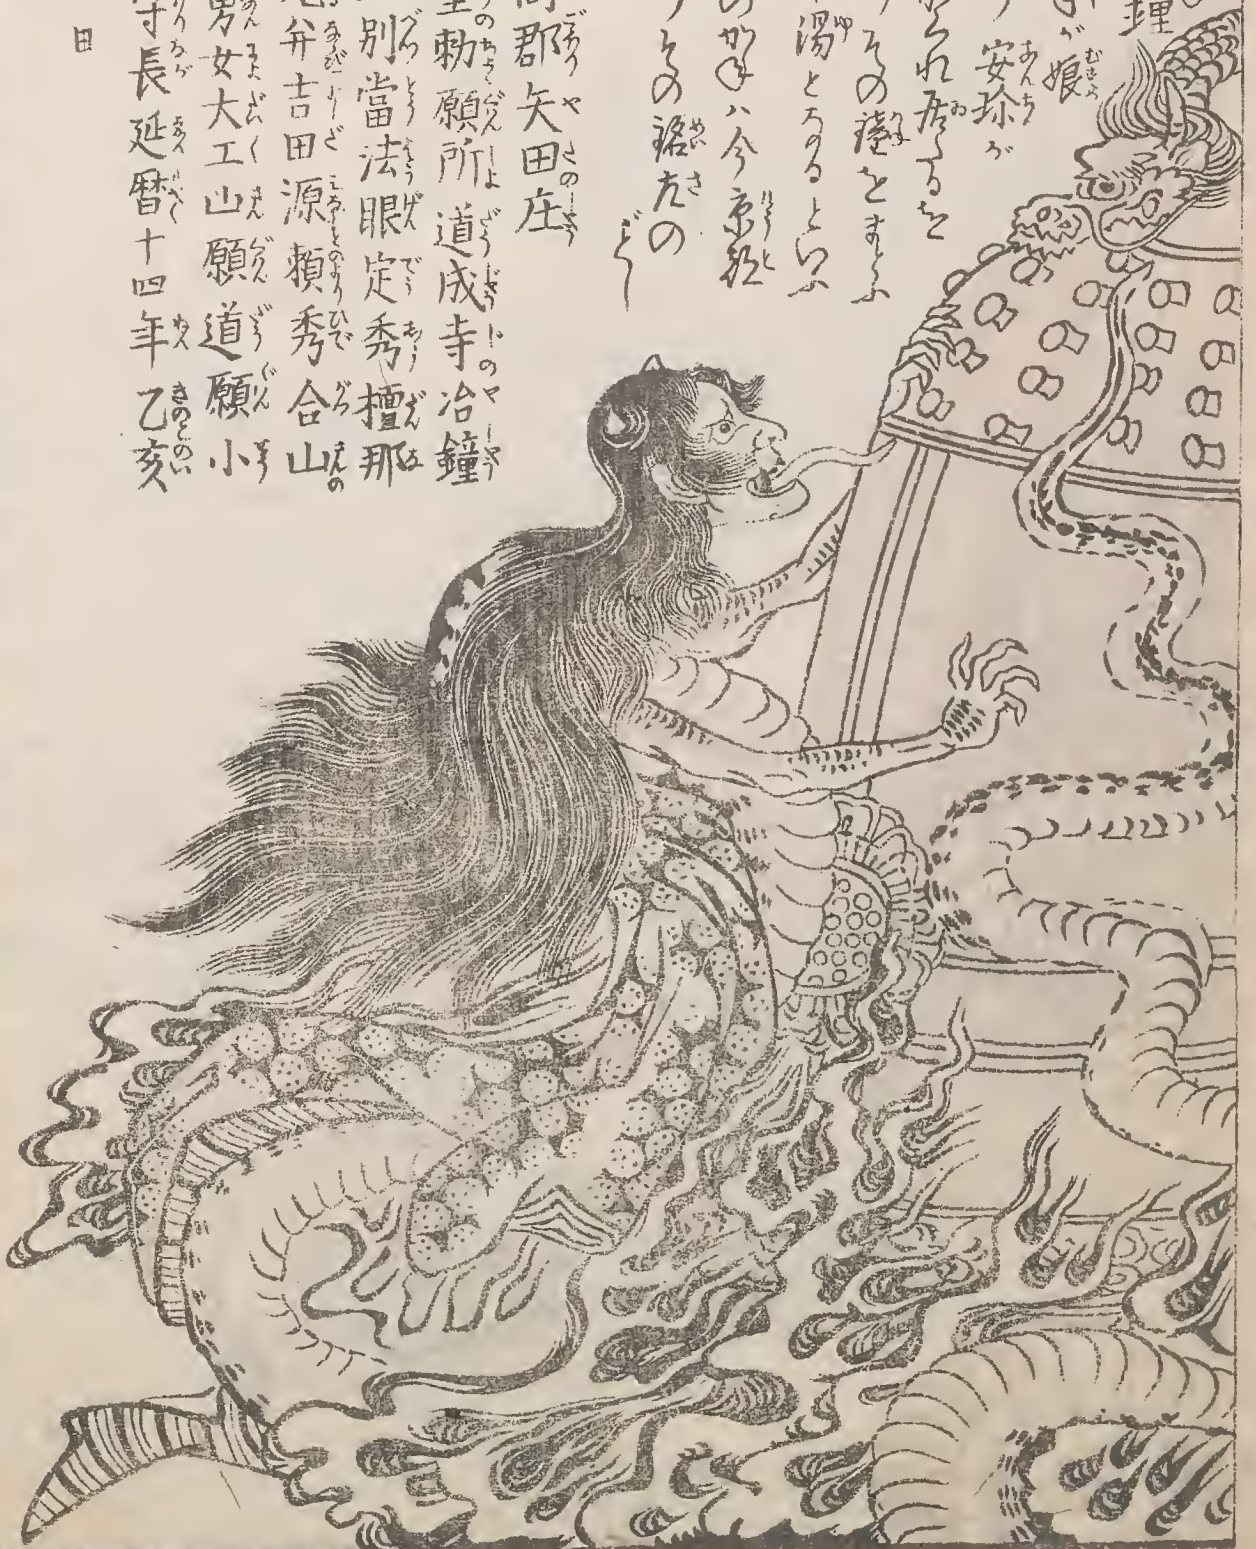 鐘
が娘
安珍が
くれ居たるを
その鐘をまとふ
湯となるといふ
のかねハ今京都
その銘左の
ごとし
郡矢田庄
皇勅願所道成寺冶鐘
別當法眼定秀檀那
并吉田源頼秀合山
男女大工山願道願小
守長延暦十四年乙亥
日